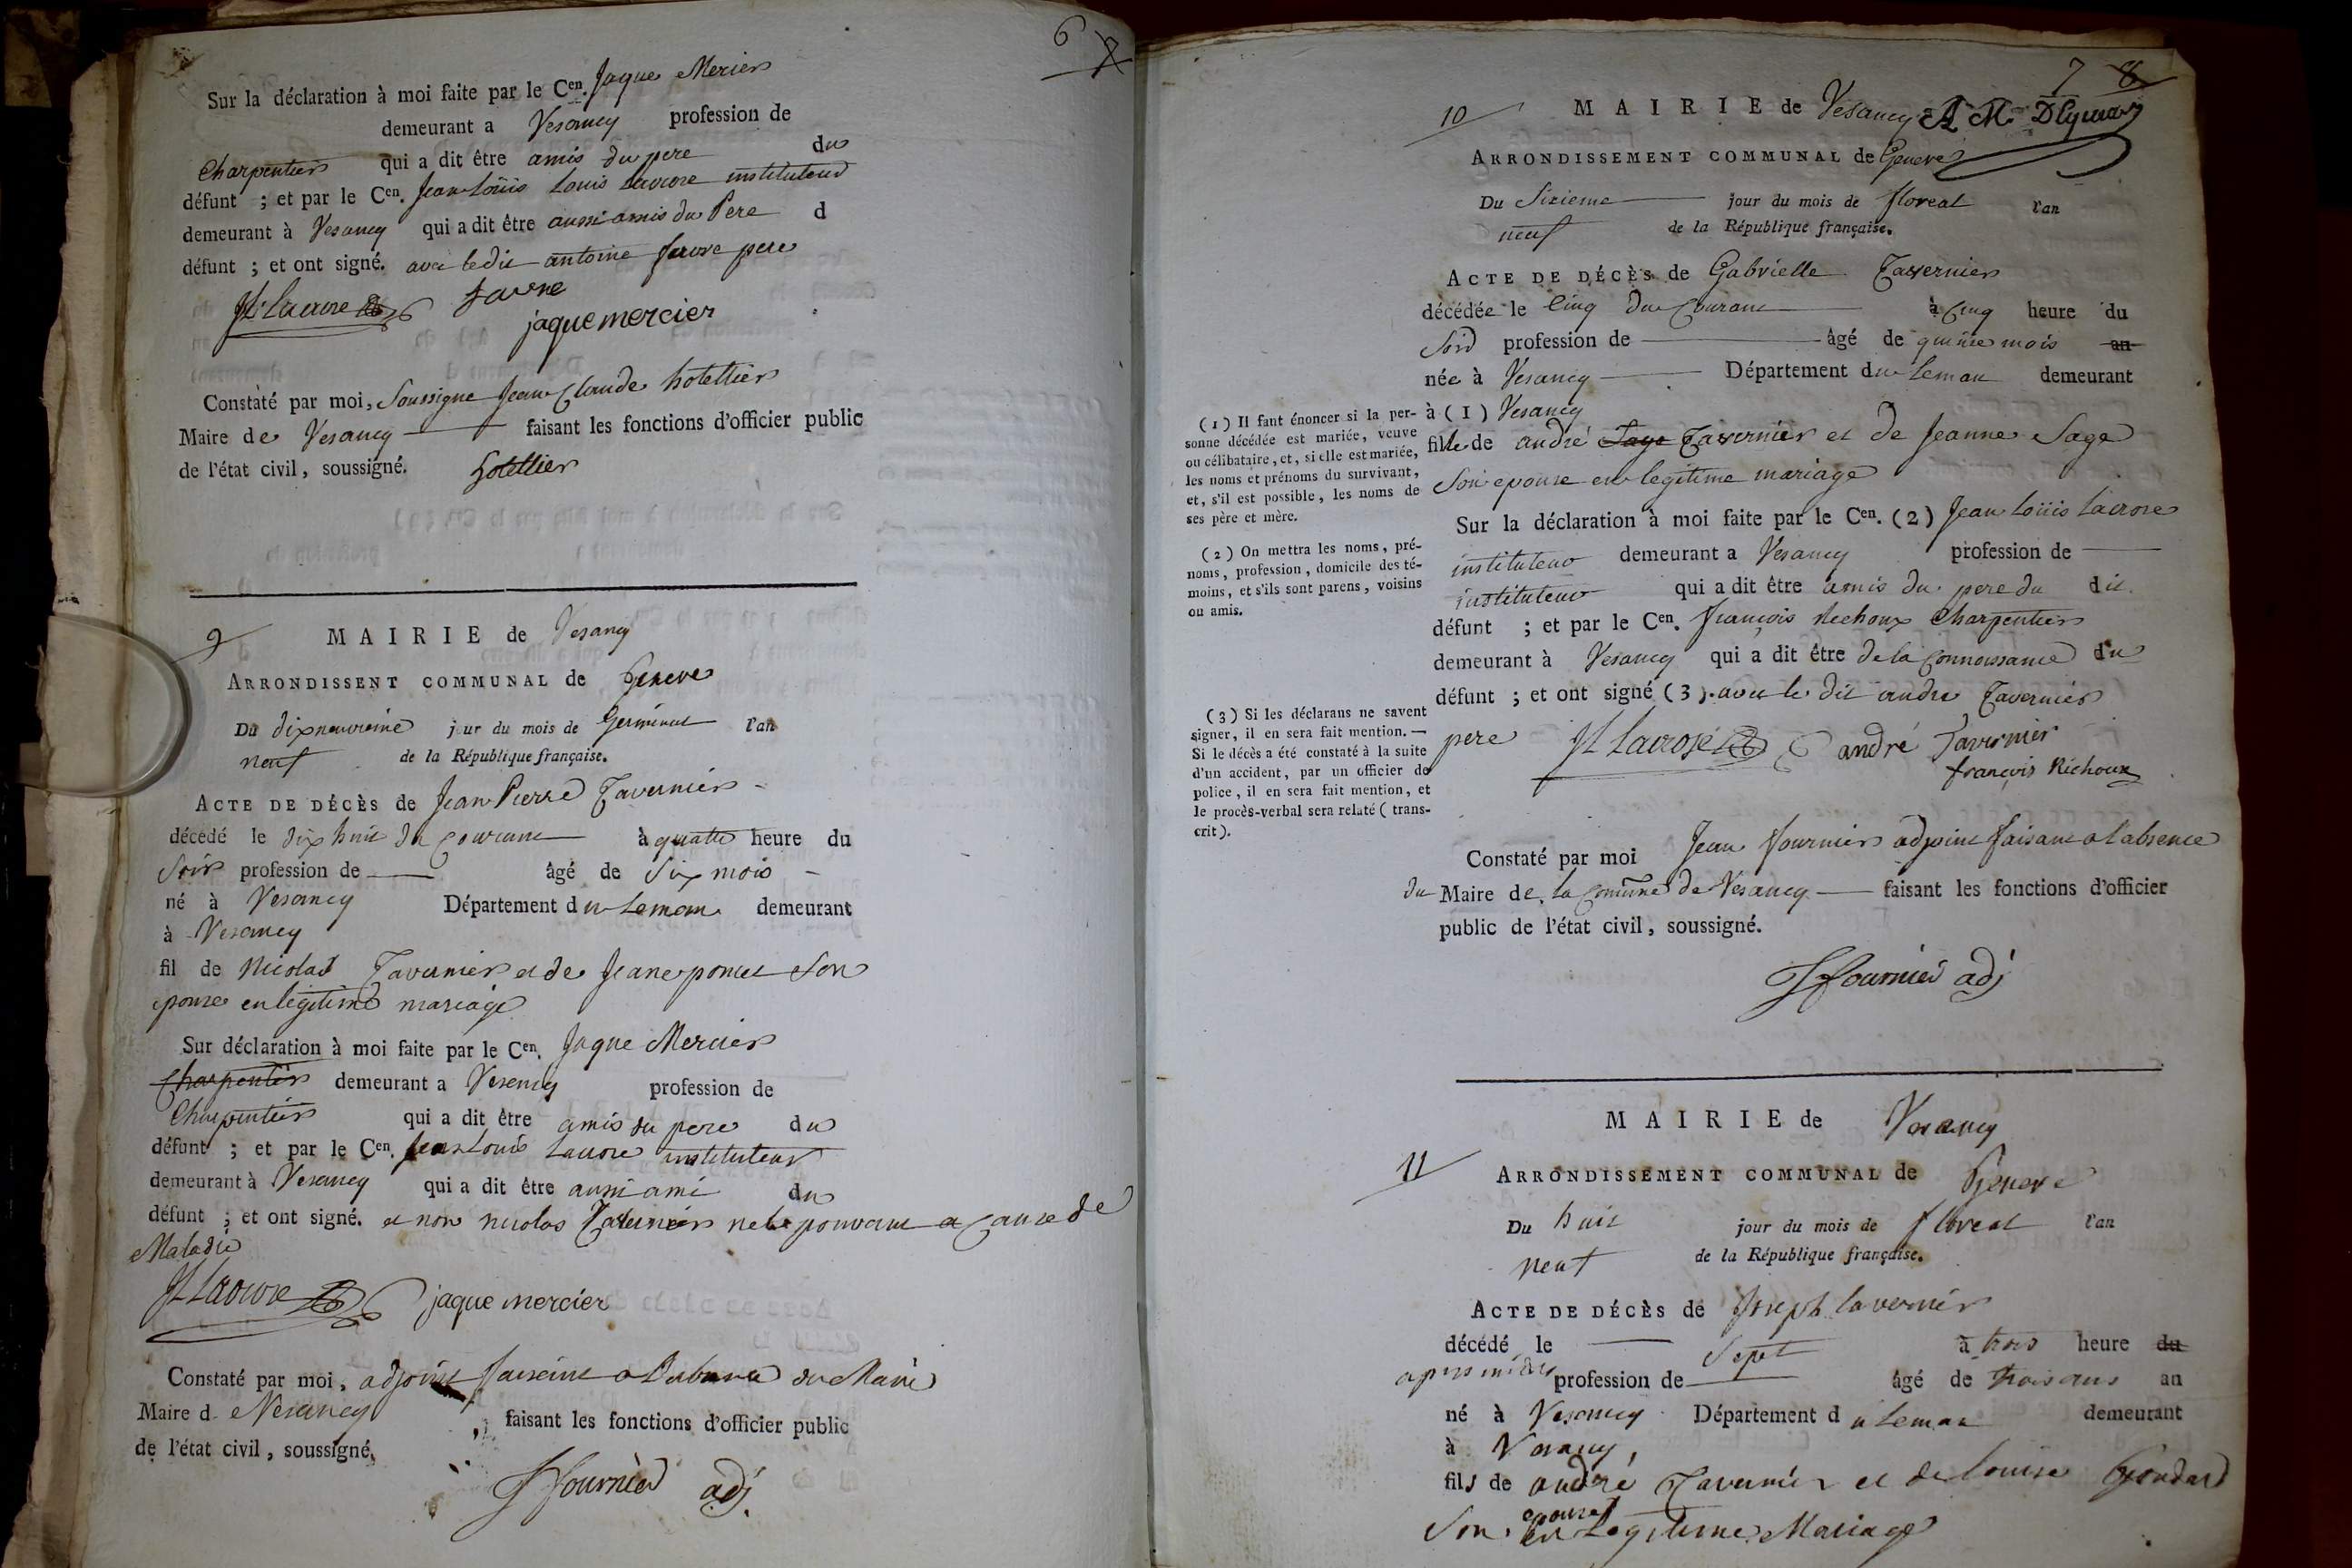 6 7
Sur la déclaration à moi faite par le Cen. Jaque Mercier
demeurant a Vesancy profession de
Charpentier qui a dit être amis du pere du
défunt ; et par le Cen. Jean Loüis Louis Lacrose instituteur
demeurant à Vesancy qui a dit être aussi amis du Pere d
défunt ; et ont signé. avec ledit antoine favre pere
JL Lacrose favre
jaque mercier
Constaté par moi, Soussigne Jean Claude hotellier
Maire de Vesancy faisant les fonctions d'officier public
de l'état civil, soussigné. hotellier
9 MAIRIE de Vesancy
ARRONDISSENT COMMUNAL de Geneve
Du dixneuvieme jour du mois de Germinal l'an
neuf de la République française.
ACTE DE DÉCÈS de Jean Pierre Tavernier
décédé le dix huit du courant à quatre heure du
Soir profession de âgé de Six mois
né à Vesancy Département du Leman demeurant
à Vesancy
fil de Nicolas Tavernier et de Jeane poncet Son
epouse en legitime mariage
Sur déclaration à moi faite par le Cen. Jaque Mercier
Charpentier demeurant a Vesancy profession de
Charpentier qui a dit être amis du pere du
défunt ; et par le Cen. Jean Louis Lacrose instituteur
demeurant à Vesancy qui a dit être aussi ami du
défunt ; et ont signé. et non nicolas Tavernier ne le pouvant a cause de
Maladie
JL Lacrose jaque mercier
Constaté par moi, adjoint faisant a l'absence du Maire
Maire d. e Vesancy faisant les fonctions d'officier public
de l'état civil, soussigné,
J fournier adj.
7 8
10 MAIRIE de Vesancy A M
ARRONDISSEMENT COMMUNAL de Geneve
Du Sixieme jour du mois de floreal l'an
neuf de la République française.
ACTE DE DÉCÈS de Gabrielle Tavernier
décédée le Cinq du Courant à Cinq heure du
Soir profession de âgé de quinze mois an
née à Vesancy Département du Leman demeurant
à (1) Vesancy
fille de andré Sage Tavernier et de Jeanne Sage
Son epouse en legitime mariage
Sur la déclaration à moi faite par le Cen. (2) Jean Loüis Lacrose
instituteur demeurant a Vesancy profession de
instituteur qui a dit être amis du pere du dit
défunt ; et par le Cen. françois Richoux Charpentier
demeurant à Vesancy qui a dit être de la Connoissance du
défunt ; et ont signé (3). avec le dit andre Tavernier
pere JL Lacrose andré Tavernier
françois Richoux
Constaté par moi Jean fournier adjoint faisant a l absence
du Maire de. la Commune de Vesancy faisant les fonctions d'officier
public de l'état civil, soussigné.
J fournier adj
(1) Il faut énoncer si la per-
sonne décédée est mariée, veuve
ou célibataire, et, si elle est mariée,
les noms et prénoms du survivant,
et, s'il est possible, les noms de
ses père et mère.
(2) On mettra les noms, pré-
noms, profession, domicile des té-
moins, et s'ils sont parens, voisins
ou amis.
(3) Si les déclarans ne savent
signer, il en sera fait mention. —
Si le décès a été constaté à la suite
d'un accident, par un officier de
police, il en sera fait mention, et
le procès-verbal sera relaté (trans-
crit).
MAIRIE de Vesancy
11 ARRONDISSEMENT COMMUNAL de Geneve
Du huit jour du mois de floreal l'an
neuf de la République française.
ACTE DE DÉCÈS de Joseph tavernier
décédé le Sept à trois heure du
apres midi profession de âgé de trois ans an
né à Vesancy Département du Leman demeurant
à Vesancy,
fils de andré Tavernier et de louise
Son epouse en Legitime Mariage